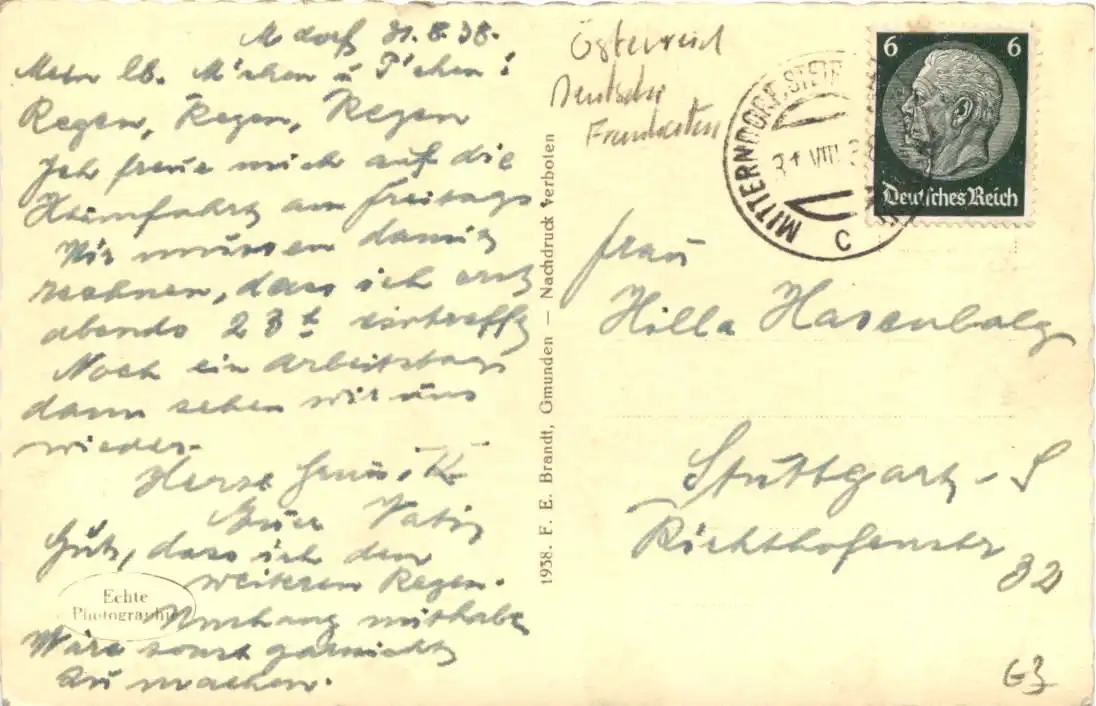 M dorf 31.8.38.
Mein lb. M'chen u P'chen!
Regen, Regen, Regen
Ich freue mich auf die
Heimfahrt am Freitag.
Wir müssen damit
rechnen, dass ich erst
abends 23 h eintreffe
Noch ein Arbeitstag,
dann sehen wir uns
wieder.
Herzl Gruss
Euer Vati
Gut, dass ich den
weiteren Regen-
Umhang mithabe
Wäre sonst garnichts
zu machen.
Echte
Photographie
1938. F. E. Brandt, Gmunden — Nachdruck verboten
Österreich
Deutsche
Frankatur
MITTERNDORF, STEIR
31 VIII 38
C
6 6
Deutsches Reich
Frau
Hilla Hasenbalg
Stuttgart-S
Richthofenstr
32